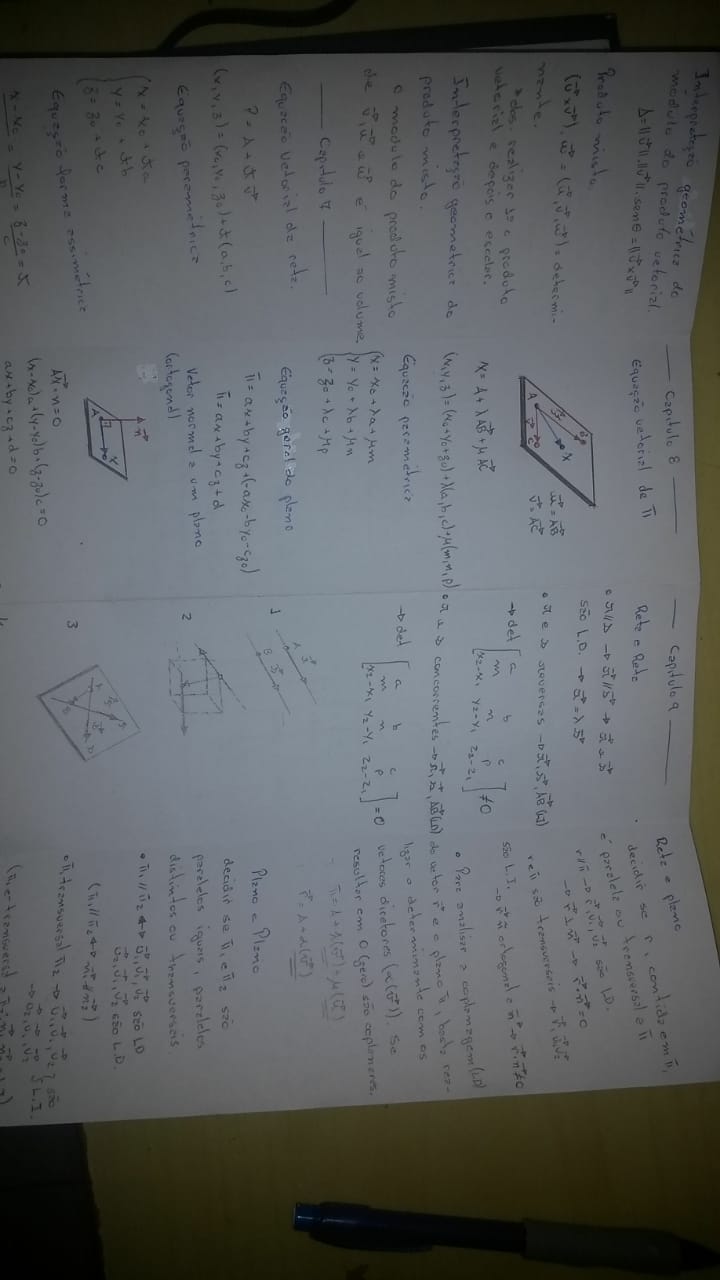 Interpretação geométrica do
módulo do produto vetorial.
A = ||u||.||v||.senθ = ||u x v||
Produto misto.
(u x v).w = (u, v e w) = determi-
nante.
realizar se o produto
vetorial e depois o escalar.
Interpretação geometrica do
produto misto.
O modulo do produto misto
de v, u e w é igual ao volume
— Capitulo 7 —
Equação vetorial da reta.
P = A + t v
(x, y, z) = (x0, y0, z0) + t(a, b, c)
Equação paramétrica
x = x0 + ta
y = y0 + tb
z = z0 + tc
Equação forma assimétrica
x - x0 = y - y0 = z - z0 = t
b c
— Capitulo 8 —
Equação vetorial de π
u = AB
v = AC
A B C X
X = A + λAB + μAC
(x, y, z) = (x0 + y0 + z0) + λ(a, b, c) + μ(m, n, p)
Equação paramétrica
x = x0 + λa + μm
y = y0 + λb + μn
z = z0 + λc + μp
Equação geral do plano
π = ax + by + cz + (-ax0 - by0 - cz0)
π = ax + by + cz + d
Vetor normal a um plano
(ortogonal)
n
A X
AX · n = 0
(x-x0)a + (y-y0)b + (z-z0)c = 0
ax + by + cz + d = 0
— Capitulo 9 —
Reta e Reta
• r // s → r // s → r e s
são L.D. → r = λs
• r e s reversas → r, s, AB (LI)
→ det [a b c
m n p
x2-x1 y2-y1 z2-z1] ≠ 0
• r e s concorrentes → r, s, AB (LD)
→ det [a b c
m n p
x2-x1 y2-y1 z2-z1] = 0
1
2
3
Reta e plano
decidir se r, contida em π,
é paralela ou transversal a π
r // π → r, v1, v2 são LD.
→ r ⊥ n → r · n = 0
r e π são transversais → r, u, v
são L.I. → r · n ≠ 0
• Para analisar a coplanagem (LD)
do vetor r e o plano π, basta rea-
lizar o determinante com os
vetores diretores (α(v)). Se
resultar em 0 (zero) são coplanares.
π = A + λ(v) + μ(u)
r = A + α(v)
Plano e Plano
decidir se π1 e π2 são
paralelos iguais, paralelos
distintos ou transversais
• π1 // π2 ↔ u1, v1, v2 são LD
u2, v1, v2 são L.D.
(π1 // π2 ↔ n1 // n2)
• π1 transversal π2 → u1, v1, v2 } são
→ u2, v1, v2 } L.I.